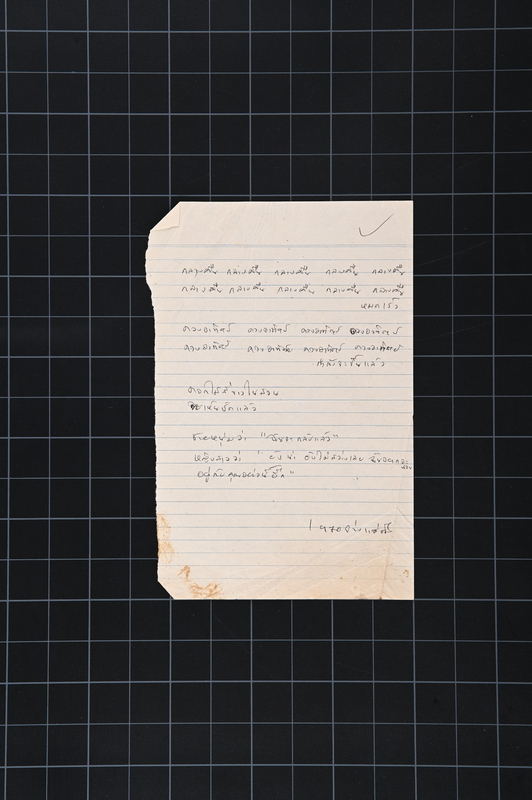 กลางคืน กลางคืน กลางคืน กลางคืน กลางคืน
กลางคืน กลางคืน กลางคืน กลางคืน กลางคืน
หมดเร็ว
ดวงอาทิตย์ ดวงอาทิตย์ ดวงอาทิตย์ ดวงอาทิตย์
ดวงอาทิตย์ ดวงอาทิตย์ ดวงอาทิตย์ ดวงอาทิตย์
กำลังจะขึ้นแล้ว
ดอกไม้สีขาวในสวน
เห็นชัดแล้ว
ชายหนุ่มว่า "ฉันจะกลับแล้ว"
หญิงสาวว่า " ยังน่า ยังไม่สว่างเลย ฉันอยาก
อยู่กับคุณอย่างนี้อีก"